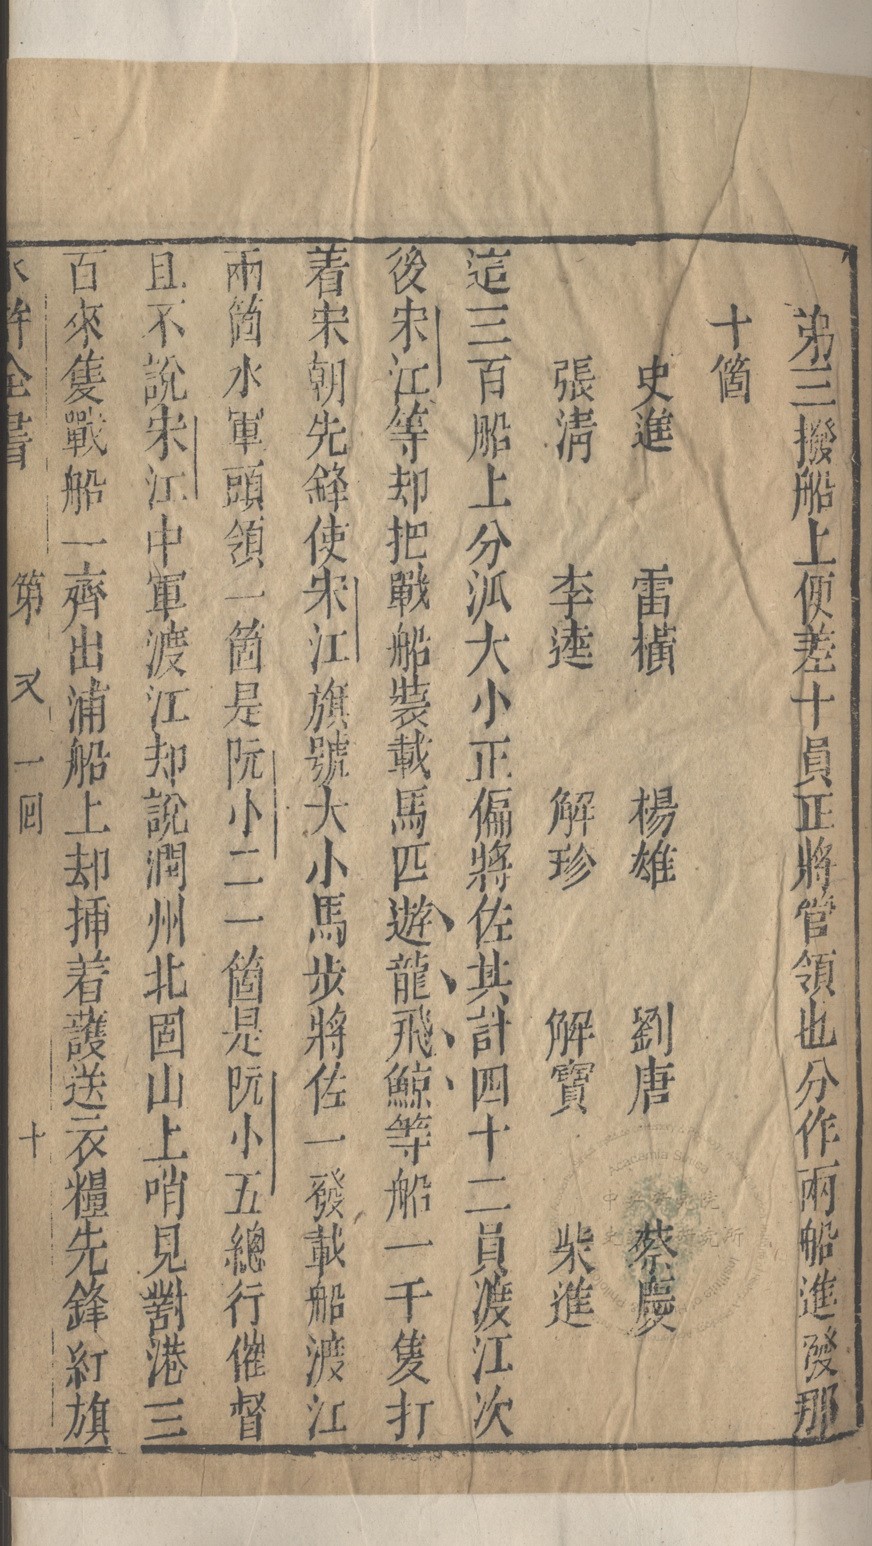 第三撥船上便差十員正將管領也分作兩船進發那
十箇
史進 雷橫 楊雄 劉唐 蔡慶
張淸 李逵 解珍 解寶 柴進
這三百船上分派大小正偏將佐共計四十二員渡江次
後宋江等却把戰船裝載馬匹遊龍飛鯨等船一千隻打
着宋朝先鋒使宋江旗號大小馬步將佐一發載船渡江
兩箇水軍頭領一箇是阮小二一箇是阮小五總行催督
且不說宋江中軍渡江却說潤州北固山上哨見對港三
百來隻戰船一齊出浦船上却揷着護送衣糧先鋒紅旗
水滸全書 第 又 一回 十